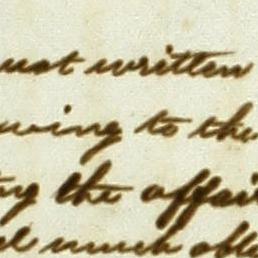 ust written
wing to the
ng the affair
el much obl